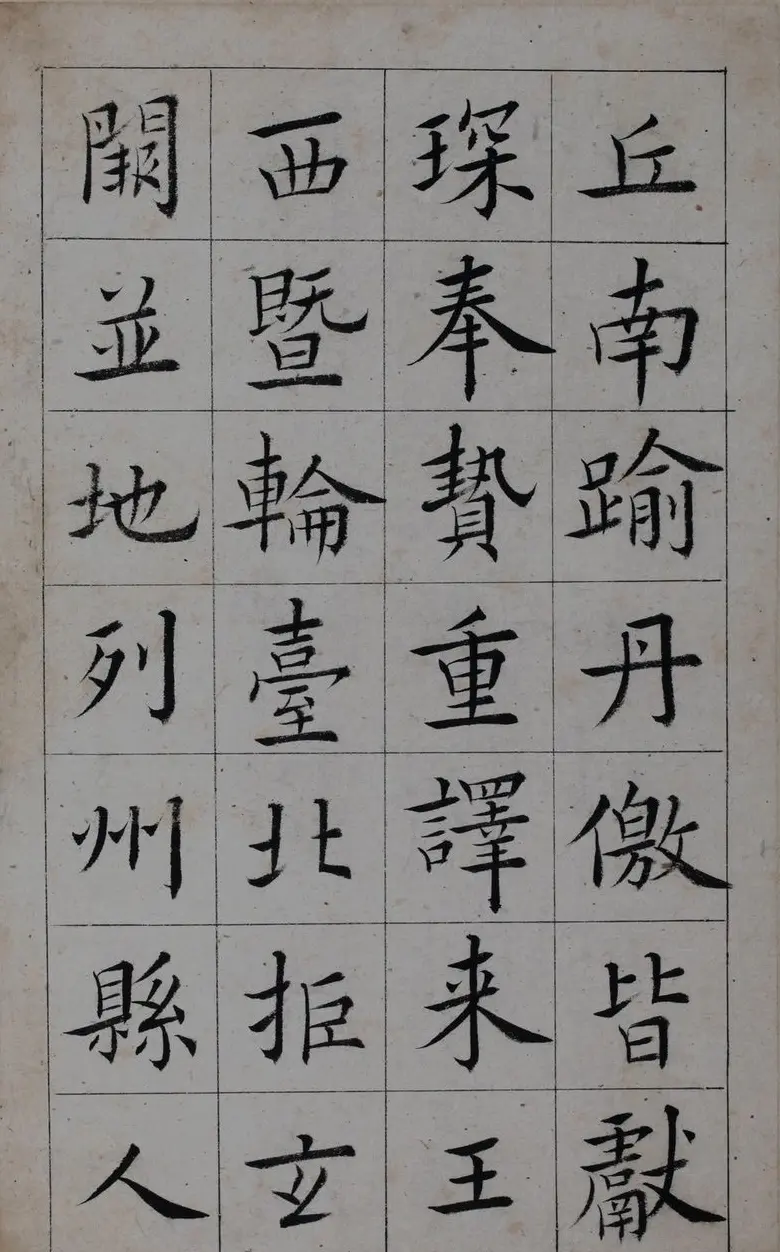 丘南踰丹儌皆獻
琛奉贄重譯来王
西暨輪臺北拒玄
闕並地列州縣人